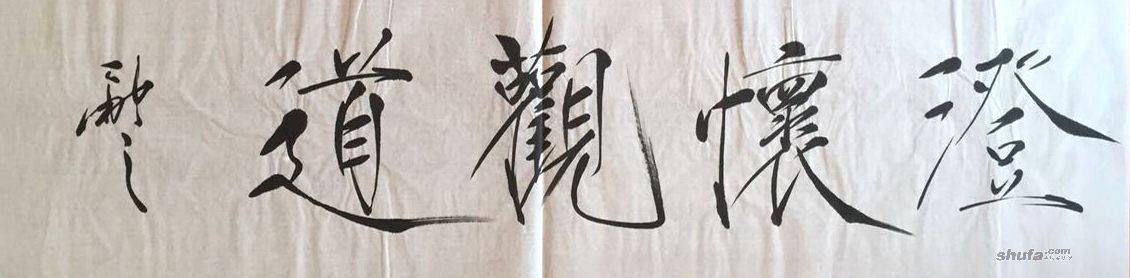 澄懷觀道
shufa.com